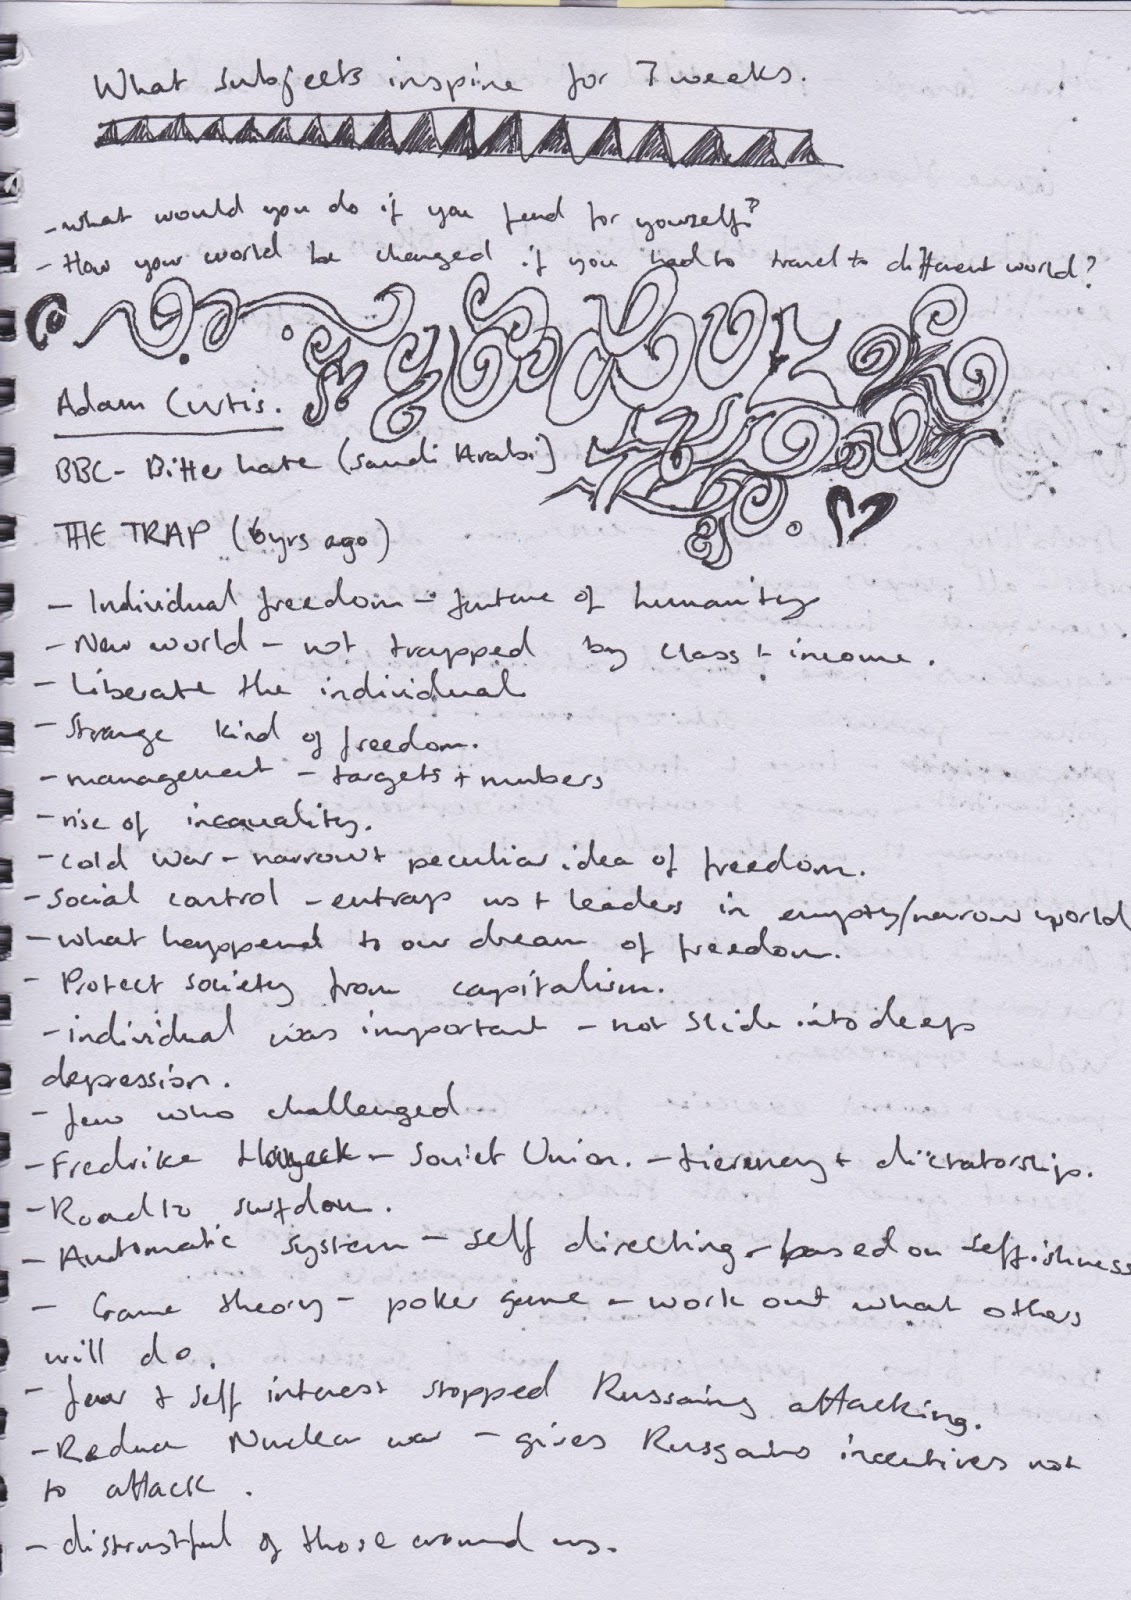 What subjects inspire for 7 weeks.
- what would you do if you fend for yourself?
- How your world be changed if you had to travel to different world?
Adam Curtis.
BBC - Bitter hate (Saudi Arabi)
THE TRAP (6yrs ago)
- Individual freedom - future of humanity
- New world - not trapped by class + income.
- Liberate the individual
- Strange kind of freedom.
- management - targets + numbers
- rise of inequality.
- Cold war - narrow + peculiar idea of freedom.
- Social control - entrap us + leaders in empty/narrow world
- what happened to our dream of freedom.
- Protect society from capitalism.
- individual was important - not slide into deep
depression.
- few who challenged
- Fredrike Hayeck - Soviet Union. - tierency + dictatorship.
- Road to surfdom.
- Automatic system - self directing - based on selfishness
- Game theory - poker game - work out what others
will do.
- fear + self interest stopped attacking.
- Reduce Nuclear war - gives incentives not
to attack.
- distrustful of those around us.